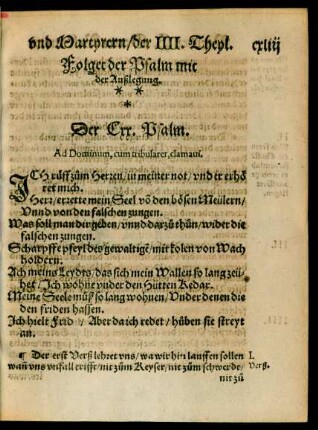 vnd Martyrern/der IIII. Theyl. cxliij
Folget der Psalm mit
der Außlegung.
* *
*
Der Cxx. Psalm.
Ad Dominum, cum tribularer, clamaui.
ICH rüff zům Herren, in meiner not, vnd er erhö
ret mich.
Herr/ errette mein Seel vō den bösen Meülern/
Vnnd von den falschen zungen.
Was soll man dir geben/ vnnd darzů thůn/ wider die
falschen zungen.
Scharpffe pfeyl des gewaltigē/ mit kolen von Wach
holdern.
Ach meins Leydts/ das sich mein Wallen so lang zeü-
het/ Ich wohne vnder den Hütten Kedar.
Meine Seele můß so lang wohnen/ Vnder denen die
den friden hassen.
Ich hielt Frid/ Aber da ich redet/ hůben sie streyt
an.
¶ Der erst Verß lehret vns/ wa wir hin lauffen sollen I.
wañ vns vnfall trifft/ nit zům Keyser/ nit zům schwerde/ Verß.
nit zů